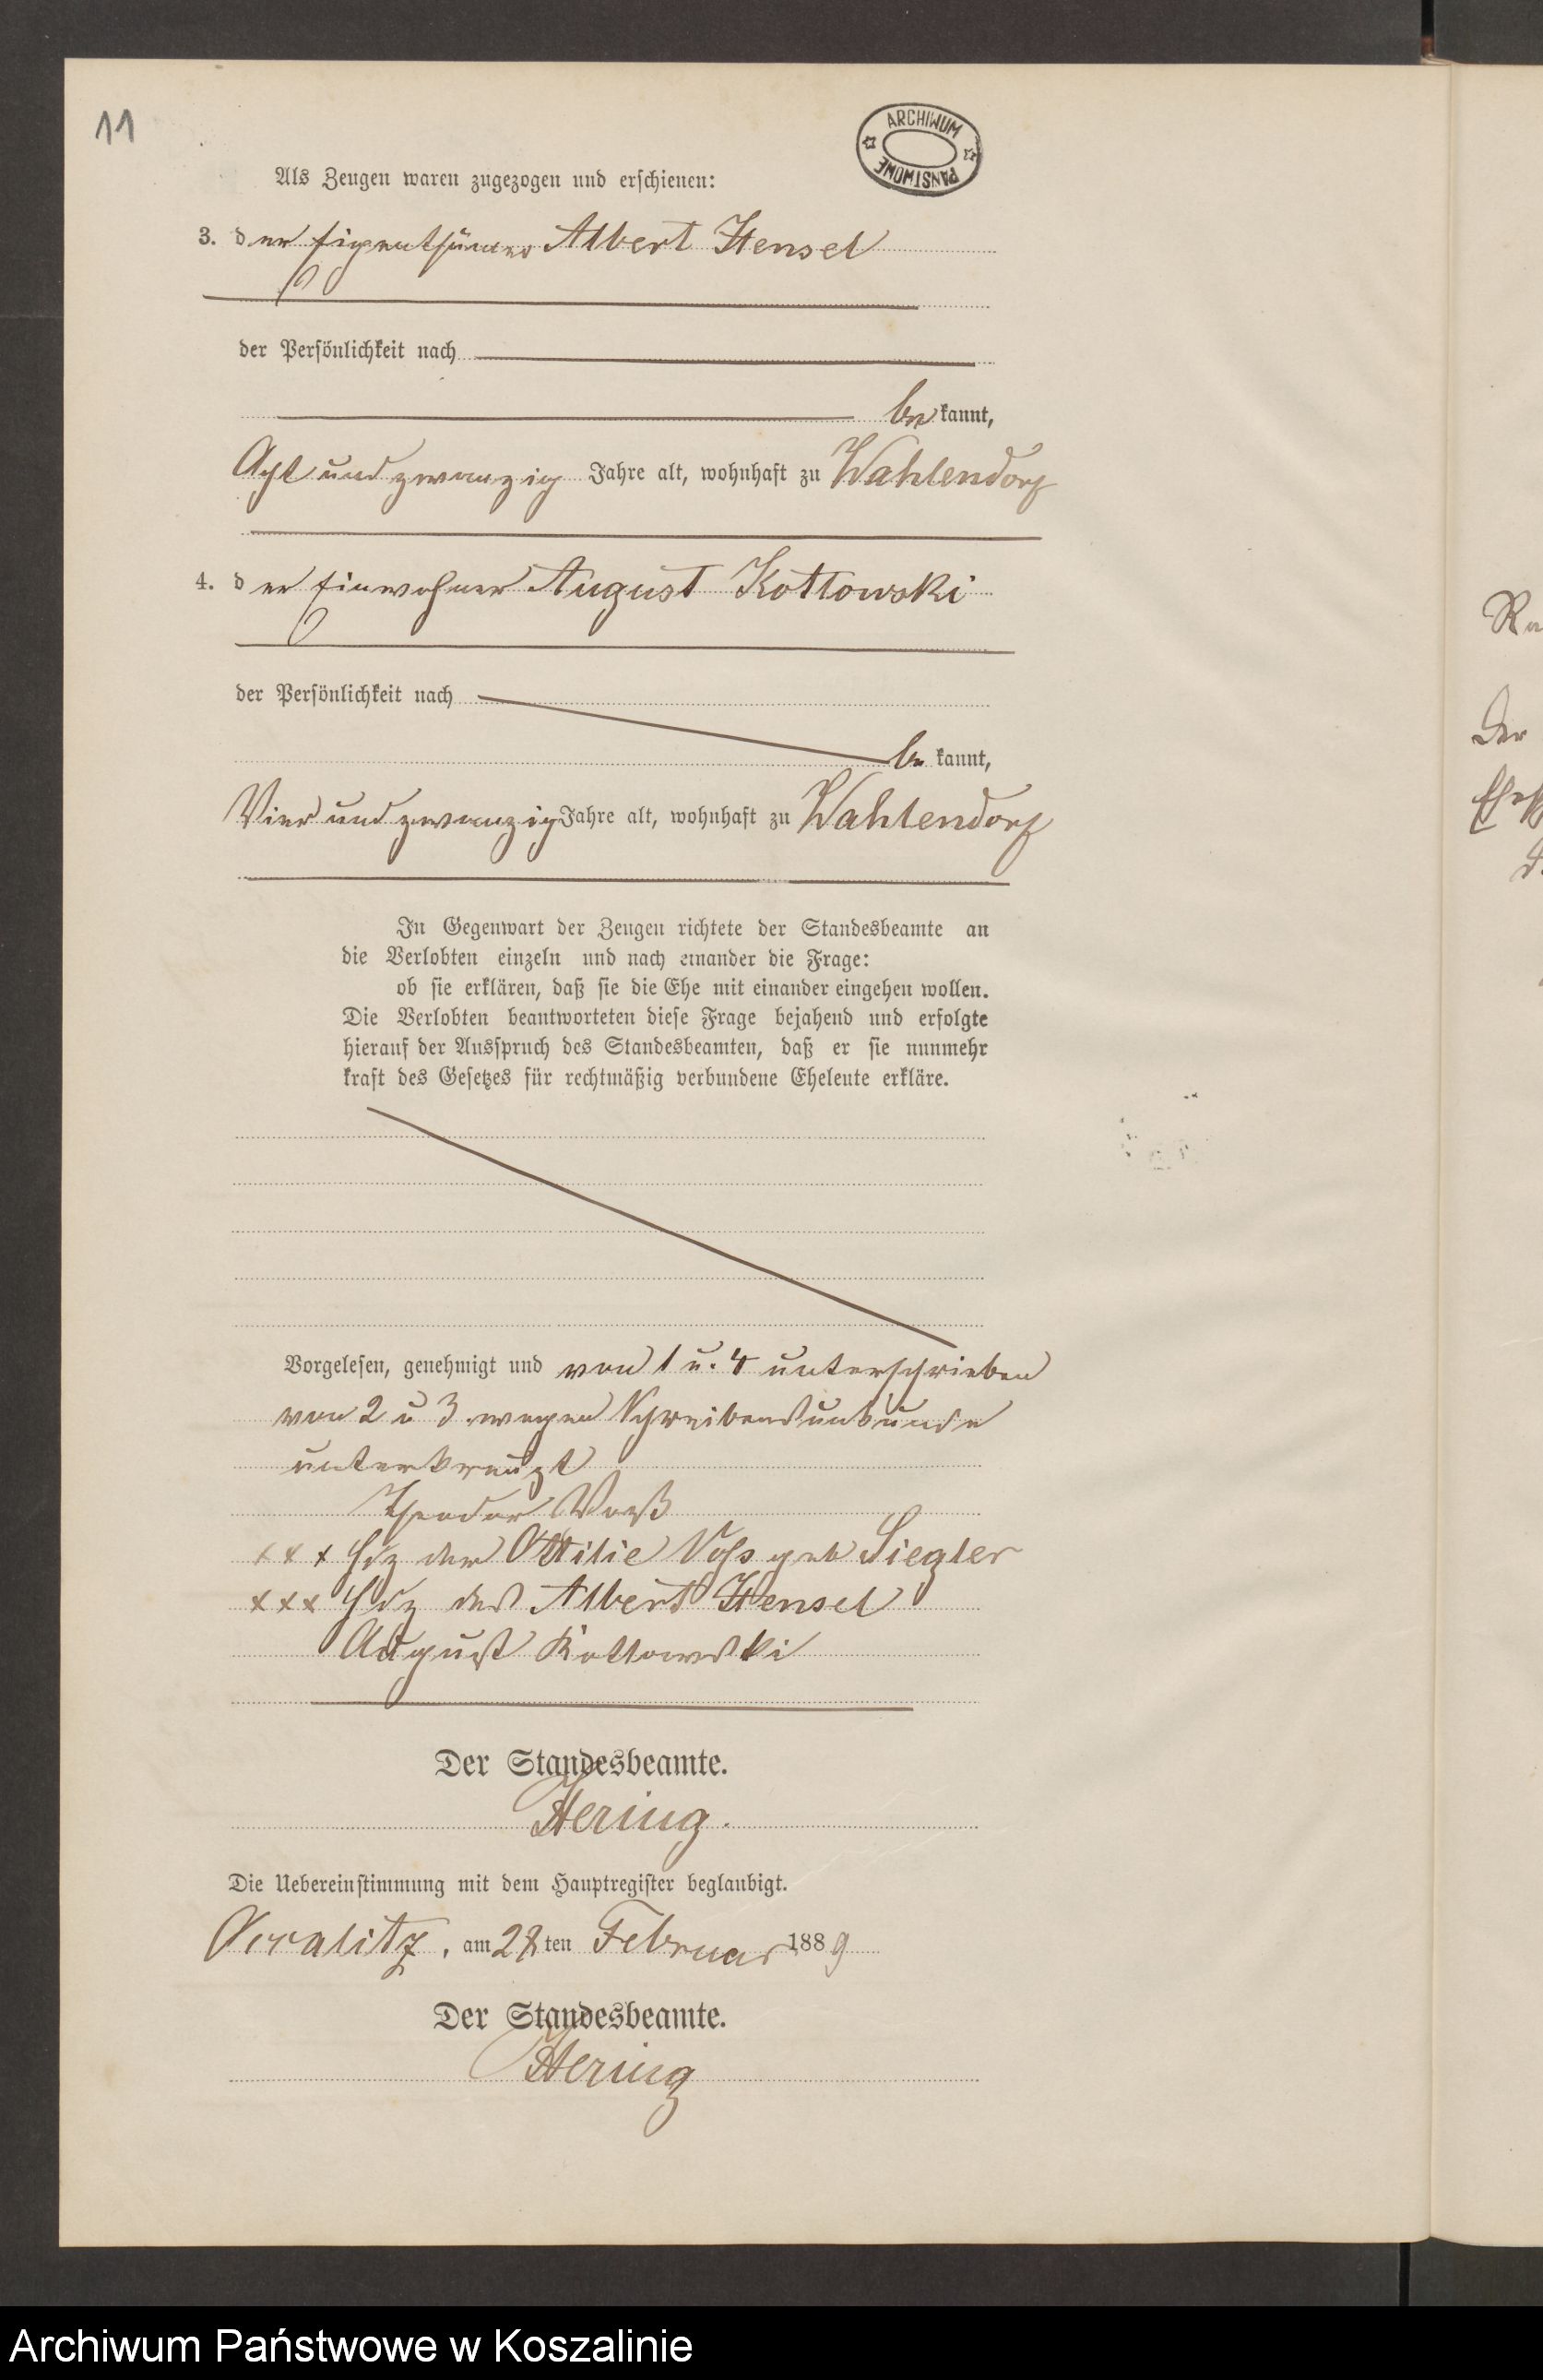 11
ARCHIWUM
PAŃSTWOWE
Als Zeugen waren zugezogen und erschienen:
3. der Eigenthümer Albert Hensel
der Persönlichkeit nach
be kannt,
Acht und zwanzig Jahre alt, wohnhaft zu Wahlendorf
4. der Einwohner August Kottowski
der Persönlichkeit nach
be kannt,
Vier und zwanzig Jahre alt, wohnhaft zu Wahlendorf
In Gegenwart der Zeugen richtete der Standesbeamte an
die Verlobten einzeln und nach einander die Frage:
ob sie erklären, daß sie die Ehe mit einander eingehen wollen.
Die Verlobten beantworteten diese Frage bejahend und erfolgte
hierauf der Ausspruch des Standesbeamten, daß er sie nunmehr
kraft des Gesetzes für rechtmäßig verbundene Eheleute erkläre.
Vorgelesen, genehmigt und von 1 u. 4 unterschrieben
von 2 u 3 wegen Schreibensunkunde
unterkreuzt
Theodor Voß
xxx Hdz der Ottilie Voß geb Siegler
xxx Hdz des Albert Hensel
August Kottowski
Der Standesbeamte.
Hering.
Die Uebereinstimmung mit dem Hauptregister beglaubigt.
, am 28ten Februar 1889
Der Standesbeamte.
Hering
Der
Archiwum Państwowe w Koszalinie